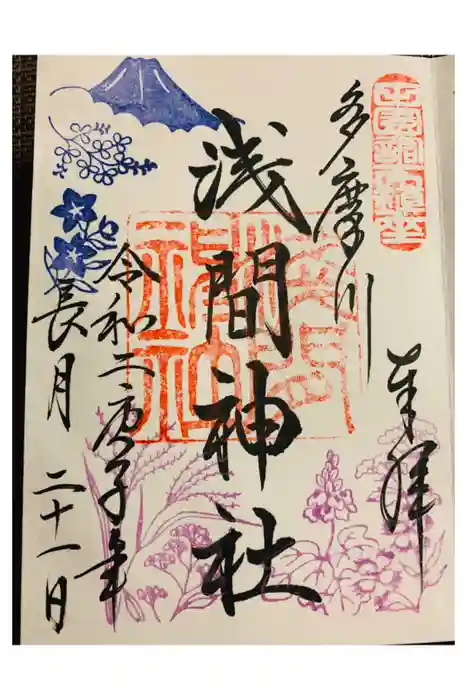 奉拝
多摩川
浅間神社
令和二庚子年
長月 二十一日